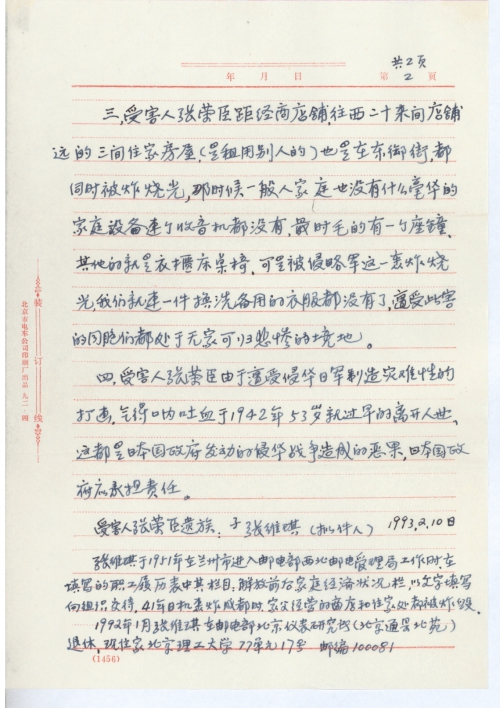 共2页
年 月 日 第 2 页
三,受害人张荣臣距经商店铺,往西二十来间店铺
远的三间住家房屋,(是租用别人的)也是在东御街,都
同时被炸烧光,那时候一般人家庭也没有什么豪华的
家庭设备连个收音机都没有,最时毛的有一个座钟,
其他的就是衣柜床桌椅,可是被侵略军这一轰炸烧
光,我们就连一件换洗备用的衣服都没有了,遭受此害
的同胞们都处于无家可归悲惨的境地。
四,受害人张荣臣由于遭受侵华日军制造灾难性的
打击,气得口呐吐血于1942年53岁就过早的离开人世,
这都是日本国政府发动的侵华战争造成的恶果,日本国政
府应承担责任。
受害人张荣臣遗族:子 张维琪 (拟件人) 1993,2,10日
张维琪于1951年在兰州市进入邮电部西北邮电管理局工作时,在
填写的职工履历表中其栏目:解放前后家庭经济状况栏,以文字填写
向组织交待,41年日机轰炸成都时,家父经营的商店和住家处都被炸毁。
1992年1月张维琪在邮电部北京仪表研究所(北京通县北苑)
退休,现住家北京理工大学77单元17号 邮编100081
(1456)
装订线
北京市电车公司印刷厂出品 九二·四